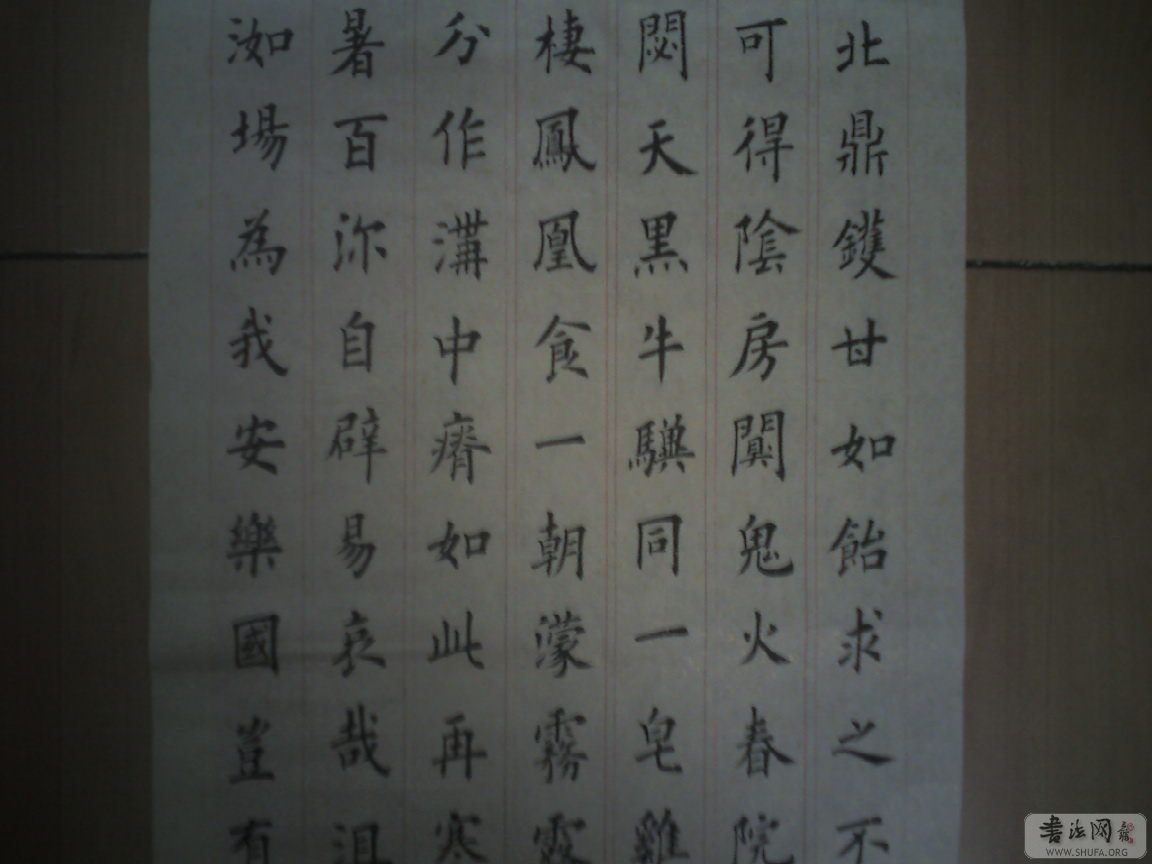 北鼎鑊甘如飴求之不
可得陰房闃鬼火春院
閟天黑牛驥同一皂雞
棲鳳凰食一朝濛霧露
分作溝中瘠如此再寒
暑百沴自辟易哀哉沮
洳場為我安樂國豈有
書法网
WWW.SHUFA.ORG